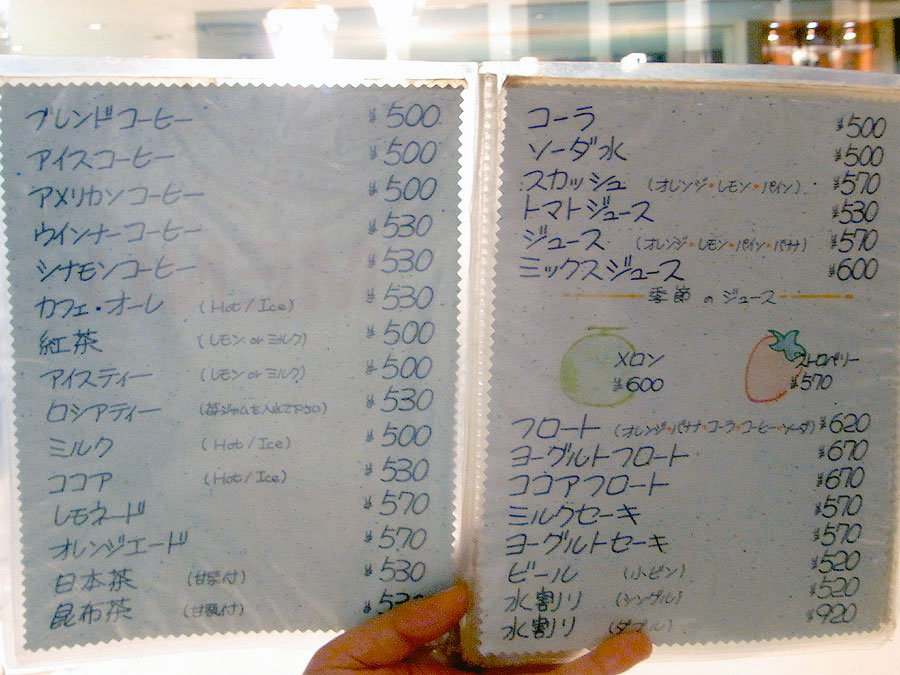 ブレンドコーヒー ¥500
アイスコーヒー ¥500
アメリカンコーヒー ¥500
ウインナーコーヒー ¥530
シナモンコーヒー ¥530
カフェ・オーレ (Hot/Ice) ¥530
紅茶 (レモン or ミルク) ¥500
アイスティー (レモン or ミルク) ¥500
ロシアティー (苺ジャムを入れて下さい) ¥530
ミルク (Hot/Ice) ¥500
ココア (Hot/Ice) ¥530
レモネード ¥570
オレンジエード ¥570
日本茶 (甘夏付) ¥530
昆布茶 (甘夏付) ¥530
コーラ ¥500
ソーダ水 ¥500
スカッシュ (オレンジ・レモン・パイン) ¥570
トマトジュース ¥530
ジュース (オレンジ・レモン・パイン・バナナ) ¥570
ミックスジュース ¥600
季節のジュース
メロン ¥600
ストロベリー ¥570
フロート (オレンジ・バナナ・コーラ・コーヒー・ソーダ) ¥620
ヨーグルトフロート ¥670
ココアフロート ¥670
ミルクセーキ ¥570
ヨーグルトセーキ ¥570
ビール (小ビン) ¥520
水割り (シングル) ¥520
水割り (ダブル) ¥920